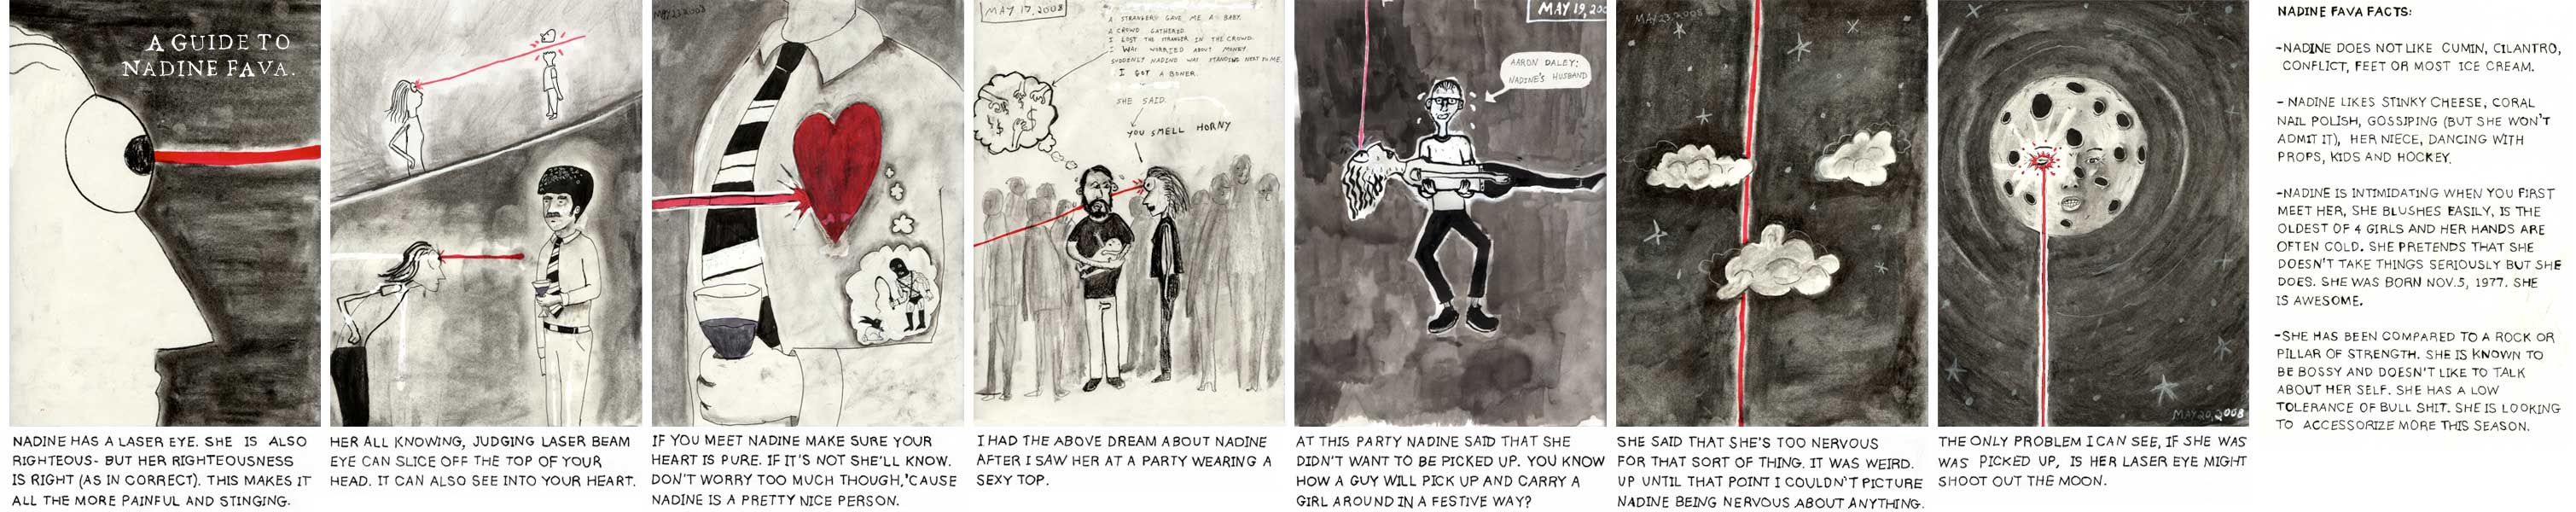 A GUIDE TO
NADINE FAVA.
NADINE HAS A LASER EYE. SHE IS ALSO
RIGHTEOUS- BUT HER RIGHTEOUSNESS
IS RIGHT (AS IN CORRECT). THIS MAKES IT
ALL THE MORE PAINFUL AND STINGING.
HER ALL KNOWING, JUDGING LASER BEAM
EYE CAN SLICE OFF THE TOP OF YOUR
HEAD. IT CAN ALSO SEE INTO YOUR HEART.
MAY 23, 2008
IF YOU MEET NADINE MAKE SURE YOUR
HEART IS PURE. IF IT'S NOT SHE'LL KNOW.
DON'T WORRY TOO MUCH THOUGH, 'CAUSE
NADINE IS A PRETTY NICE PERSON.
MAY 17, 2008
A STRANGER GAVE ME A BABY.
A CROWD GATHERED.
I LOST THE STRANGER IN THE CROWD.
I WAS WORRIED ABOUT MONEY.
SUDDENLY NADINE WAS STANDING NEXT TO ME.
I GOT A BONER.
SHE SAID
YOU SMELL HORNY
I HAD THE ABOVE DREAM ABOUT NADINE
AFTER I SAW HER AT A PARTY WEARING A
SEXY TOP.
MAY 19, 200
AARON DALEY:
NADINE'S HUSBAND
AT THIS PARTY NADINE SAID THAT SHE
DIDN'T WANT TO BE PICKED UP. YOU KNOW
HOW A GUY WILL PICK UP AND CARRY A
GIRL AROUND IN A FESTIVE WAY?
MAY 23, 2008
SHE SAID THAT SHE'S TOO NERVOUS
FOR THAT SORT OF THING. IT WAS WEIRD.
UP UNTIL THAT POINT I COULDN'T PICTURE
NADINE BEING NERVOUS ABOUT ANYTHING.
MAY 20, 2008
THE ONLY PROBLEM I CAN SEE, IF SHE WAS
WAS PICKED UP, IS HER LASER EYE MIGHT
SHOOT OUT THE MOON.
NADINE FAVA FACTS:
-NADINE DOES NOT LIKE CUMIN, CILANTRO,
CONFLICT, FEET OR MOST ICE CREAM.
- NADINE LIKES STINKY CHEESE, CORAL
NAIL POLISH, GOSSIPING (BUT SHE WON'T
ADMIT IT), HER NIECE, DANCING WITH
PROPS, KIDS AND HOCKEY.
-NADINE IS INTIMIDATING WHEN YOU FIRST
MEET HER, SHE BLUSHES EASILY, IS THE
OLDEST OF 4 GIRLS AND HER HANDS ARE
OFTEN COLD. SHE PRETENDS THAT SHE
DOESN'T TAKE THINGS SERIOUSLY BUT SHE
DOES. SHE WAS BORN NOV. 5, 1977. SHE
IS AWESOME.
-SHE HAS BEEN COMPARED TO A ROCK OR
PILLAR OF STRENGTH. SHE IS KNOWN TO
BE BOSSY AND DOESN'T LIKE TO TALK
ABOUT HER SELF. SHE HAS A LOW
TOLERANCE OF BULL SHIT. SHE IS LOOKING
TO ACCESSORIZE MORE THIS SEASON.